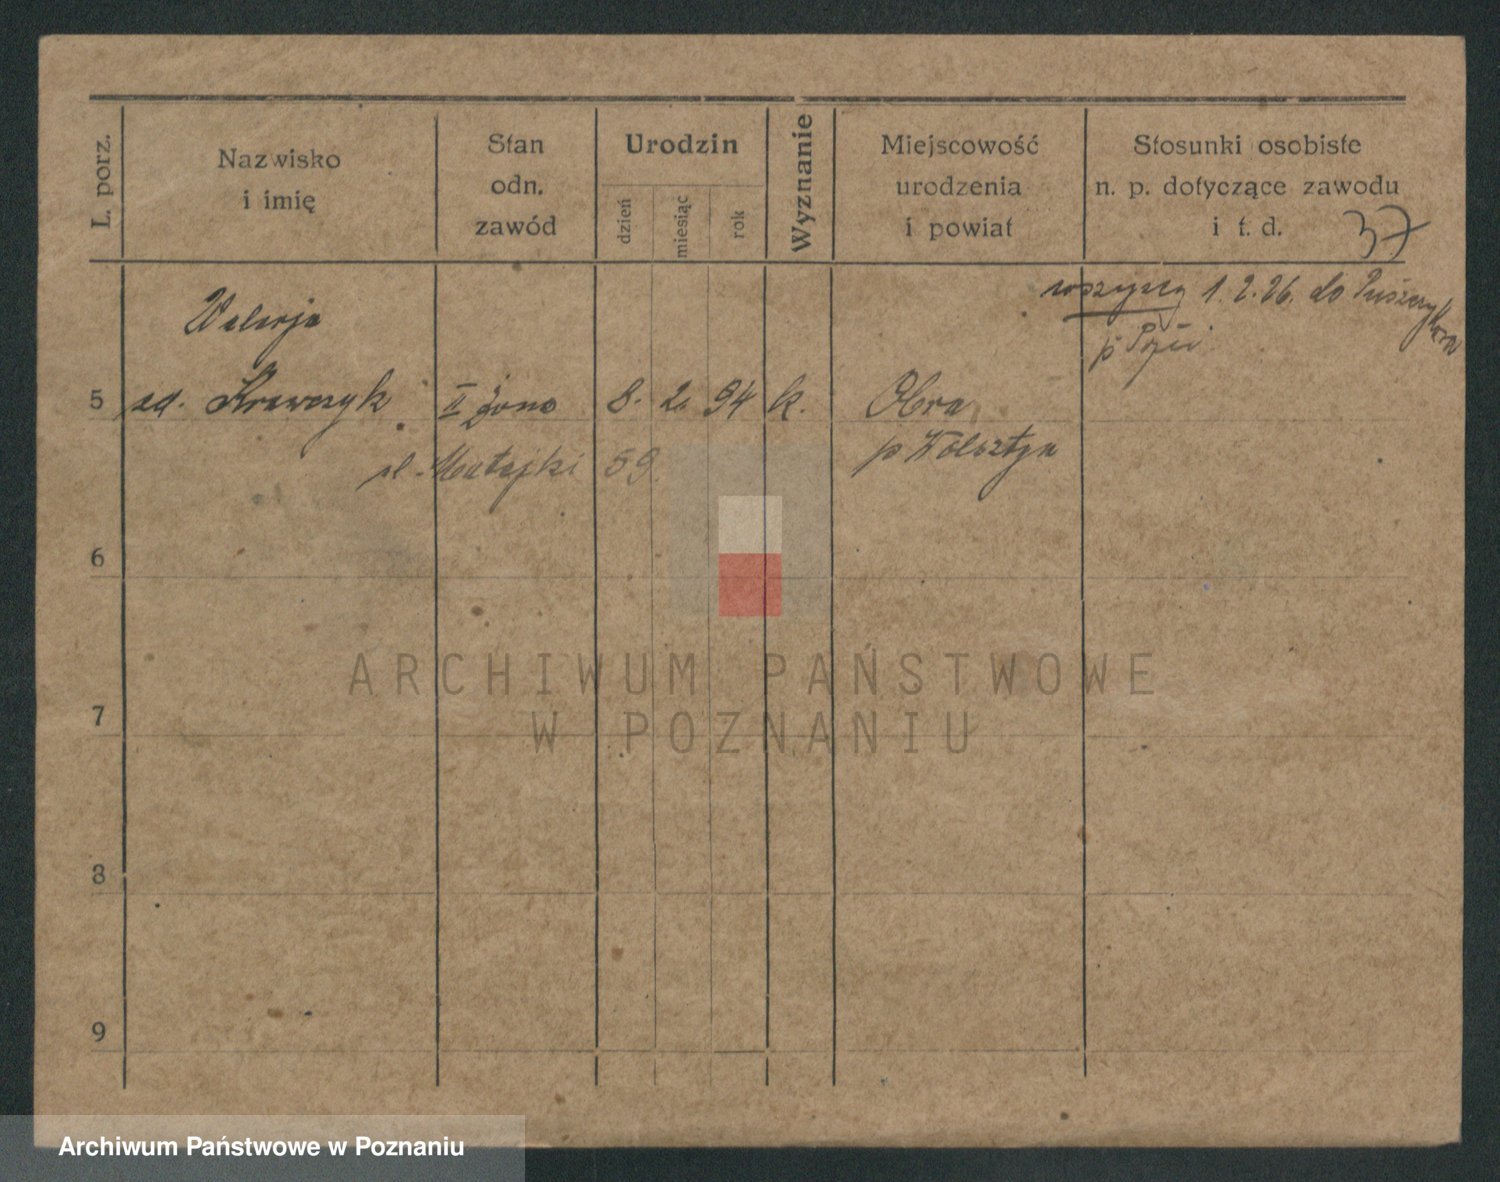 L. porz.
Nazwisko
i imię
Stan
odn.
zawód
Urodzin
dzień
miesiąc
rok
Wyznanie
Miejscowość
urodzenia
i powiat
Stosunki osobiste
n. p. dotyczące zawodu
i t. d.
37
wszyscy 1.2.26. do Puszczykowa
p
Walerja
5 zd. Krawczyk II żona 8. 2. 94 k. Obra
ul. Matejki 59. p Wolsztyn
6
7
8
9
ARCHIWUM PAŃSTWOWE
W POZNANIU
Archiwum Państwowe w Poznaniu